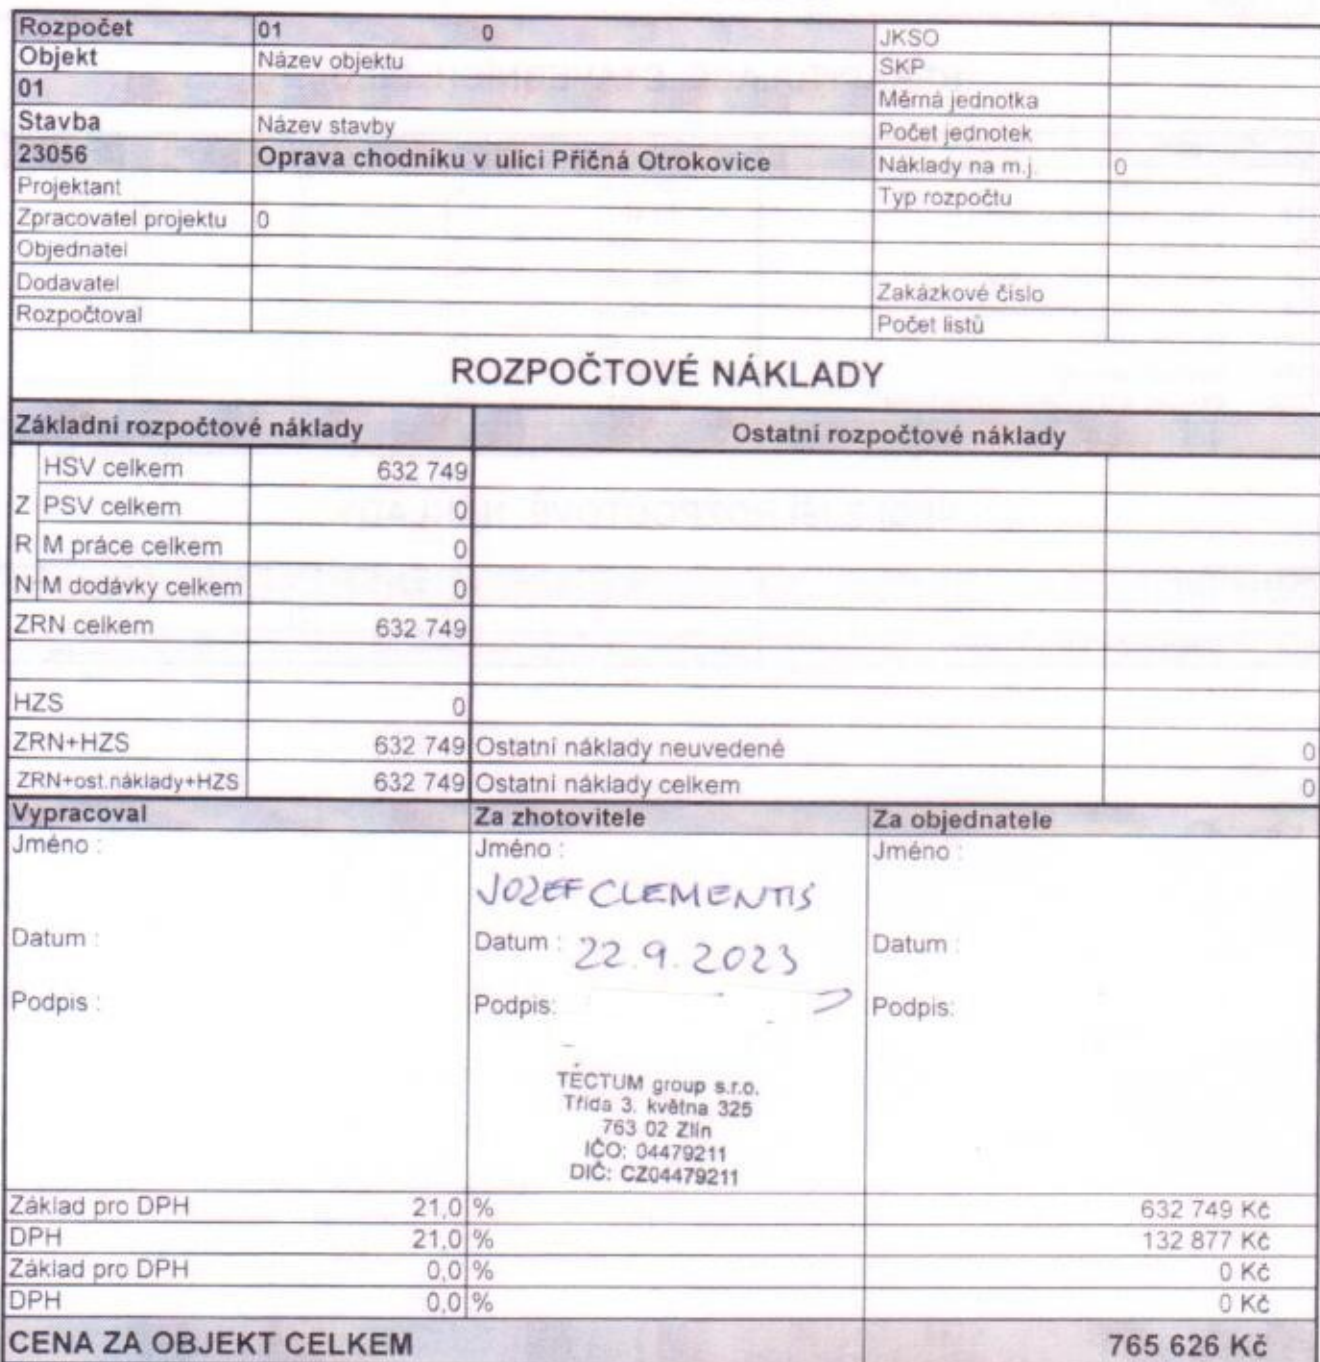 Rozpočet 01 0 JKSO
Objekt Název objektu SKP
01 Měrná jednotka
Stavba Název stavby Počet jednotek
23056 Oprava chodníku v ulici Příčná Otrokovice Náklady na m.j. 0
Projektant Typ rozpočtu
Zpracovatel projektu 0
Objednatel
Dodavatel Zakázkové číslo
Rozpočtoval Počet listů
ROZPOČTOVÉ NÁKLADY
Základní rozpočtové náklady Ostatní rozpočtové náklady
HSV celkem 632 749
Z PSV celkem 0
R M práce celkem 0
N M dodávky celkem 0
ZRN celkem 632 749
HZS 0
ZRN+HZS 632 749 Ostatní náklady neuvedené 0
ZRN+ost.náklady+HZS 632 749 Ostatní náklady celkem 0
Vypracoval Za zhotovitele Za objednatele
Jméno : Jméno : Jméno :
JOZEF CLEMENTIS
Datum : Datum : 22.9.2023 Datum :
Podpis : Podpis: Podpis:
TECTUM group s.r.o.
Třída 3. května 325
763 02 Zlín
IČO: 04479211
DIČ: CZ04479211
Základ pro DPH 21,0 % 632 749 Kč
DPH 21,0 % 132 877 Kč
Základ pro DPH 0,0 % 0 Kč
DPH 0,0 % 0 Kč
CENA ZA OBJEKT CELKEM 765 626 Kč